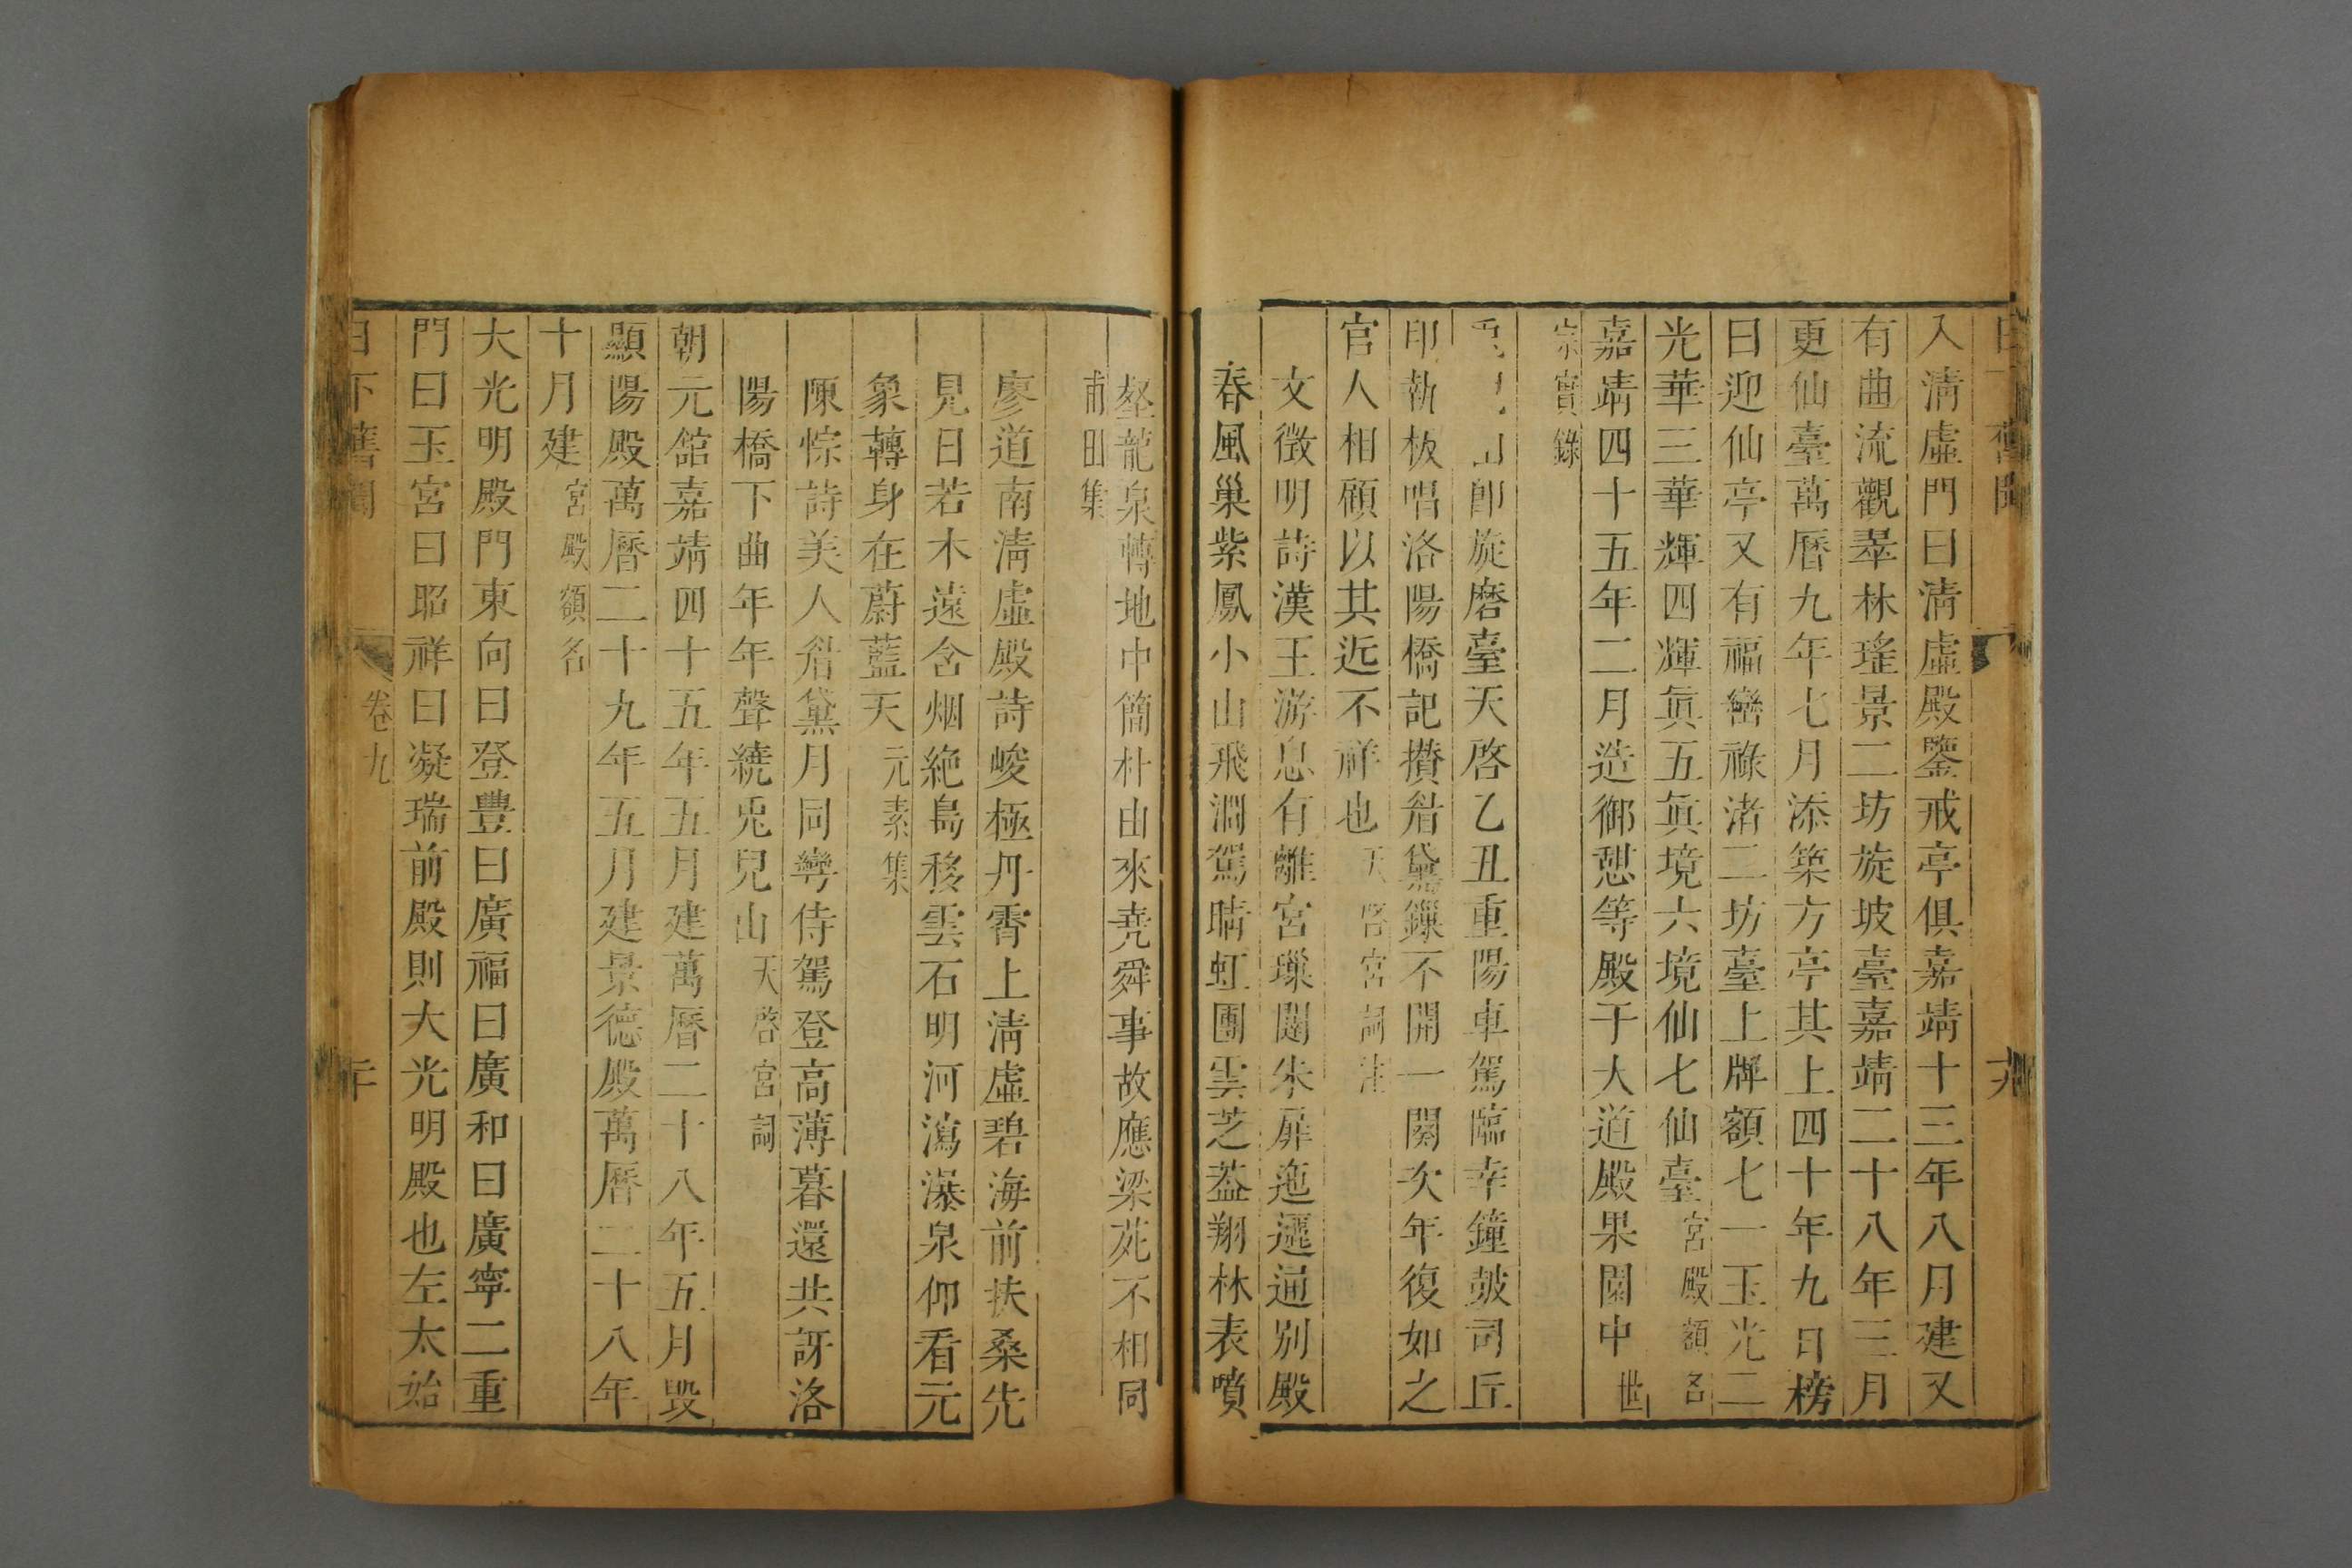 日 舊聞 十九
入淸虛門曰淸虛殿鑒戒亭俱嘉靖十三年八月建又
有曲流觀翠林瑤景二坊旋坡臺嘉靖二十八年三月
更仙臺萬曆九年七月添築方亭其上四十年九日榜
曰迎仙亭又有福巒祿渚二坊臺上牌額七一玉光二
光華三華輝四輝眞五眞境六境仙七仙臺宮殿額名
嘉靖四十五年二月造御憇等殿于大道殿果園中世
宗實錄
山卽旋磨臺天啓乙丑重陽車駕臨幸鐘鼓司丘
印執板唱洛陽橋記攢眉黛鏁不開一闋次年復如之
官人相顧以其近不祥也天啓宮詞注
文徵明詩漢王游息有離宮瑣闥朱扉迤邐通别殿
春風巢紫鳳小山飛澗駕晴虹團雲芝葢翔林表噴
壑龍泉轉地中簡朴由來堯舜事故應梁苑不相同
甫田集
廖道南淸虛殿詩峻極丹霄上淸虛碧海前扶桑先
見日若木遠含烟絶島移雲石明河瀉瀑泉仰看元
象轉身在蔚藍天元素集
陳悰詩美人眉黛月同彎侍駕登高薄暮還共訝洛
陽橋下曲年年聲繞兎兒山天啓宮詞
朝元舘嘉靖四十五年五月建萬曆二十八年五月毀
顯陽殿萬曆二十九年五月建景德殿萬曆二十八年
十月建宮殿額名
大光明殿門東向曰登豐曰廣福曰廣和曰廣寧二重
門曰玉宮曰昭祥曰凝瑞前殿則大光明殿也左太始
日下舊聞 卷九